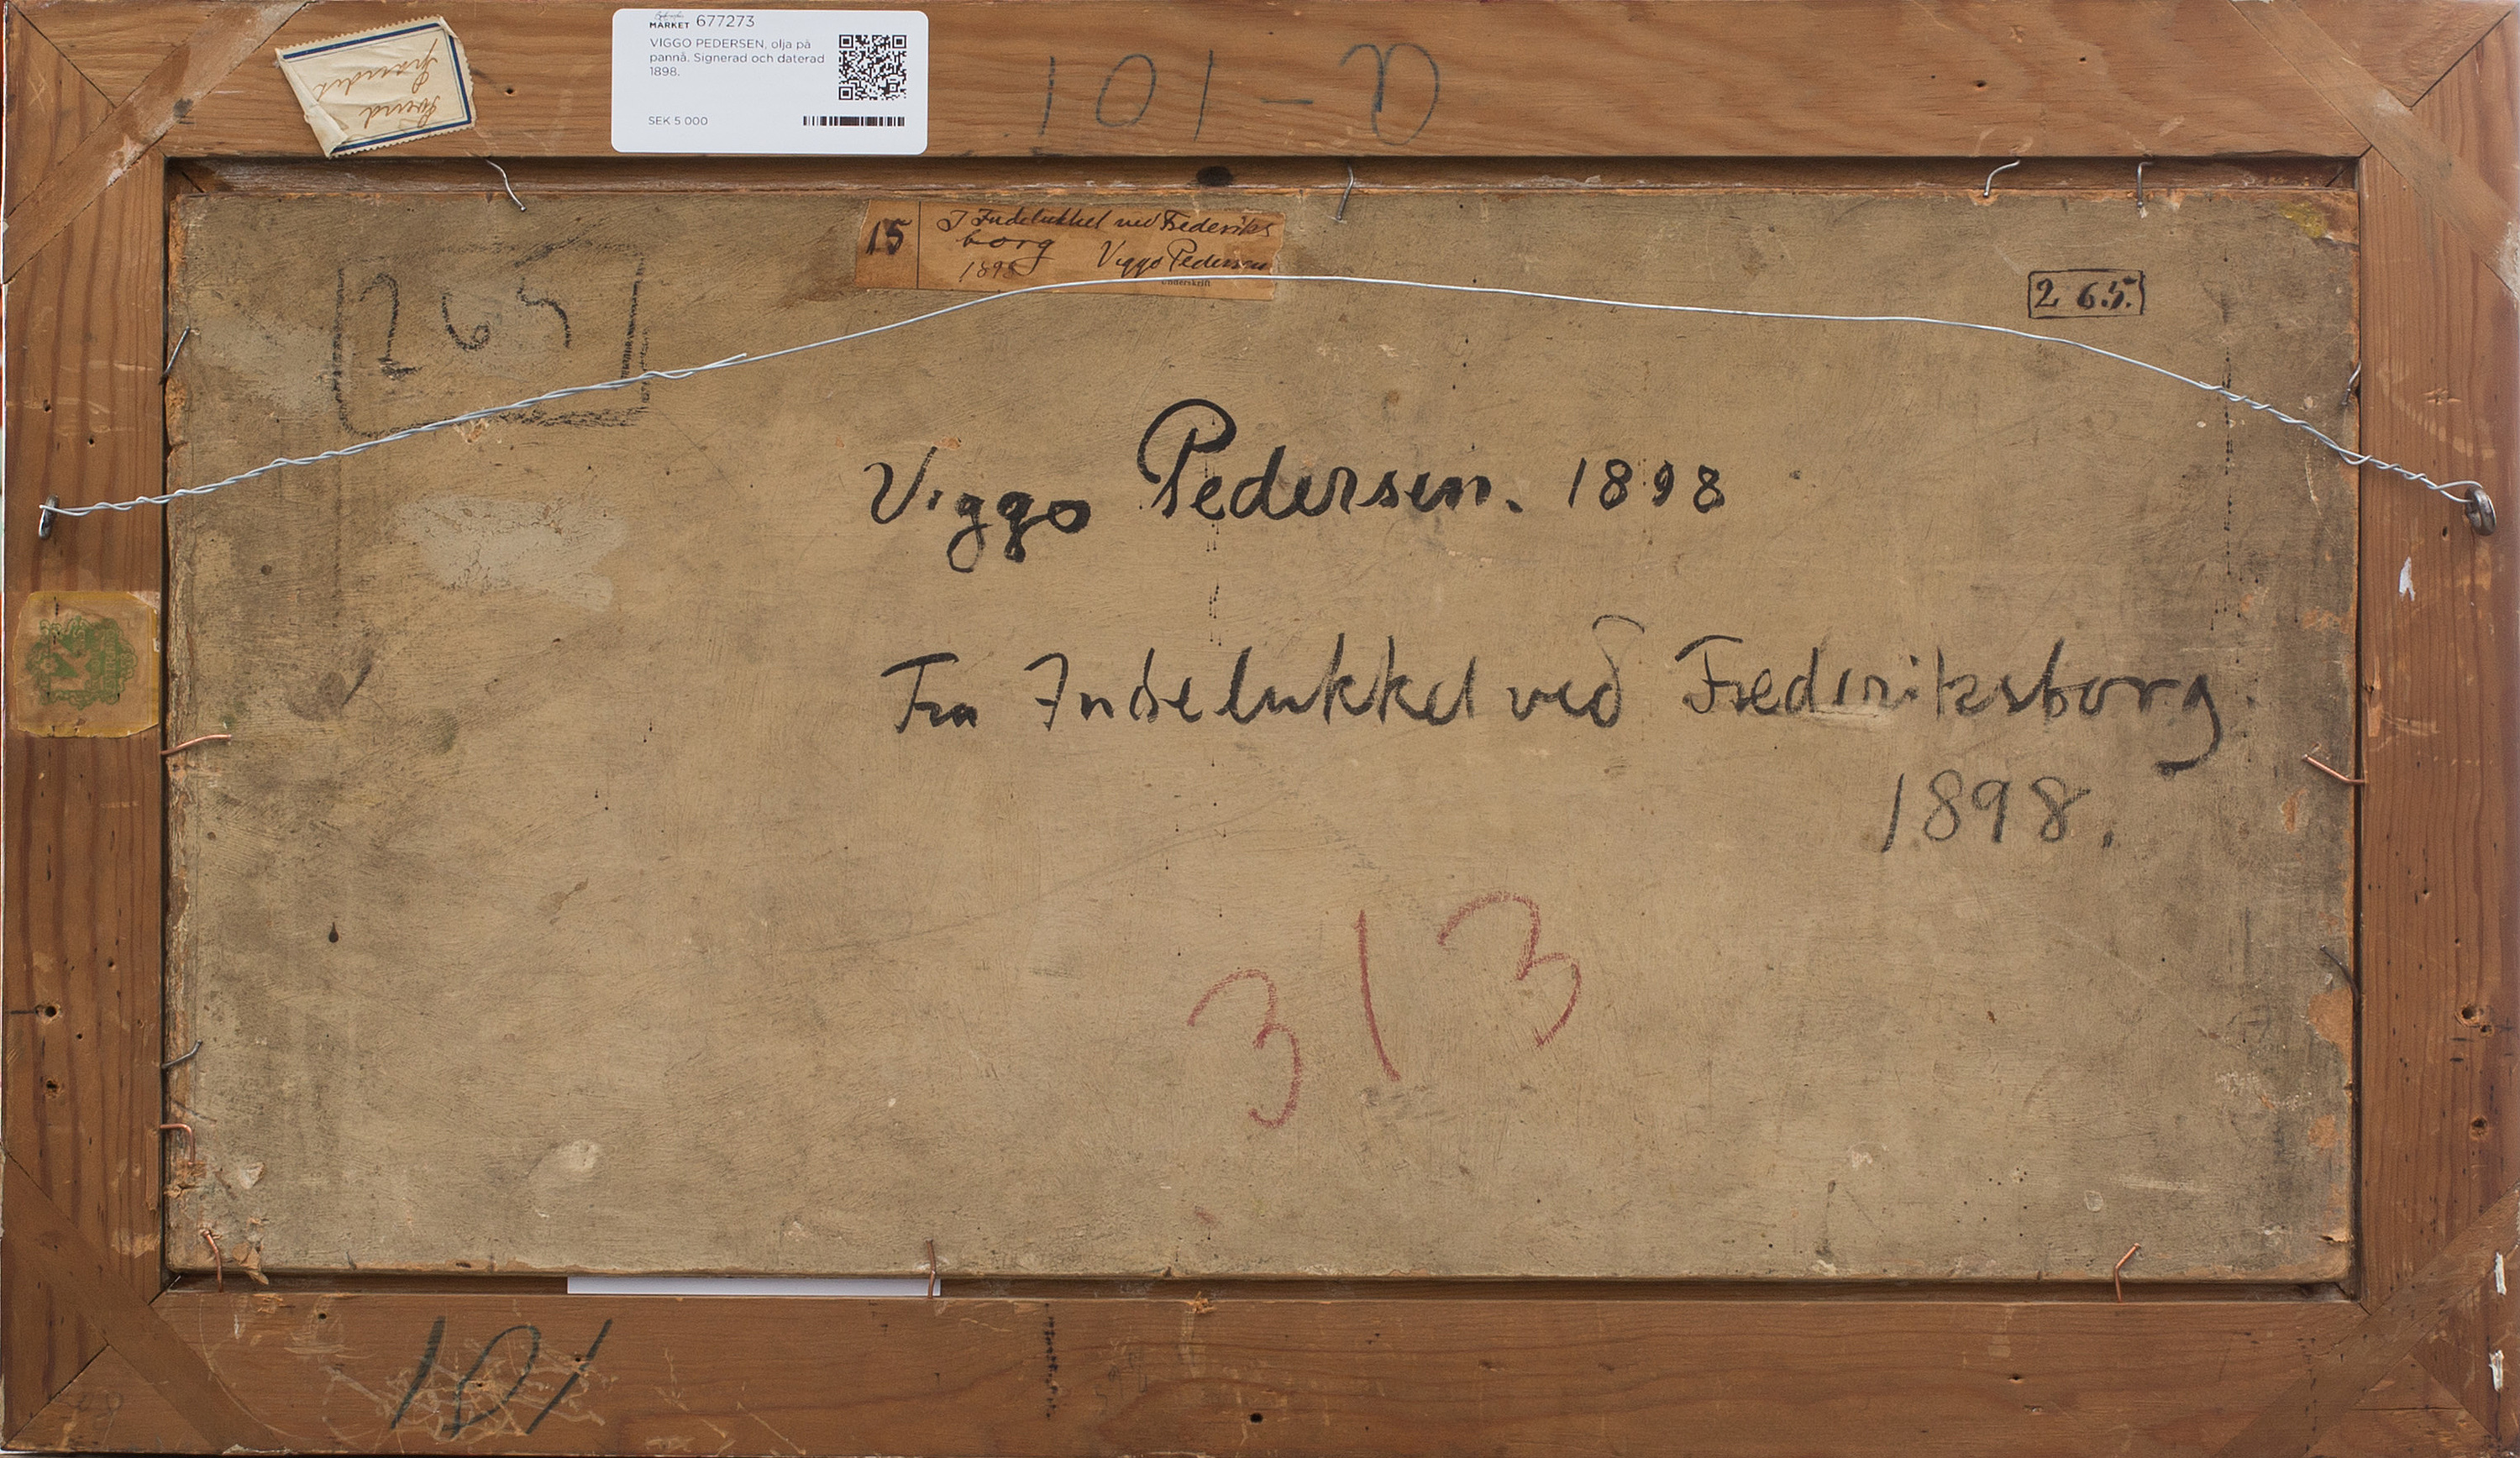 MARKET 677273
VIGGO PEDERSEN, olja på
pannå. Signerad och daterad
1898.
SEK 5 000
101-D
15
I Indelukket ved Frederiks
borg
1898 Viggo Pedersen
Underskrift
265
265.
Viggo Pedersen. 1898
Fra Indelukket ved Frederiksborg.
1898.
313
101